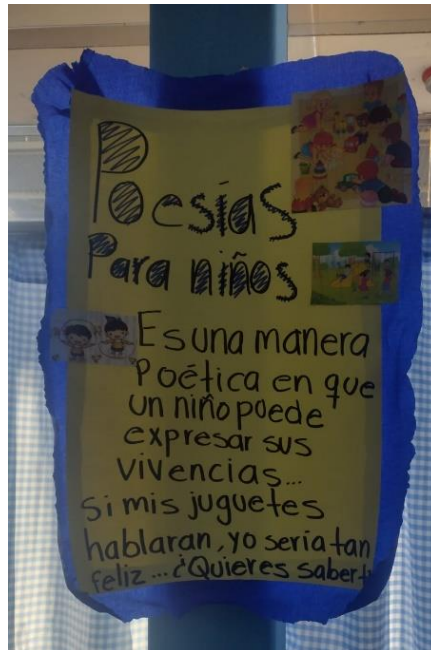 Poesías
Para niños
Es una manera
Poética en que
un niño puede
expresar sus
vivencias...
si mis juguetes
hablaran, yo sería tan
feliz... ¿Quieres saber